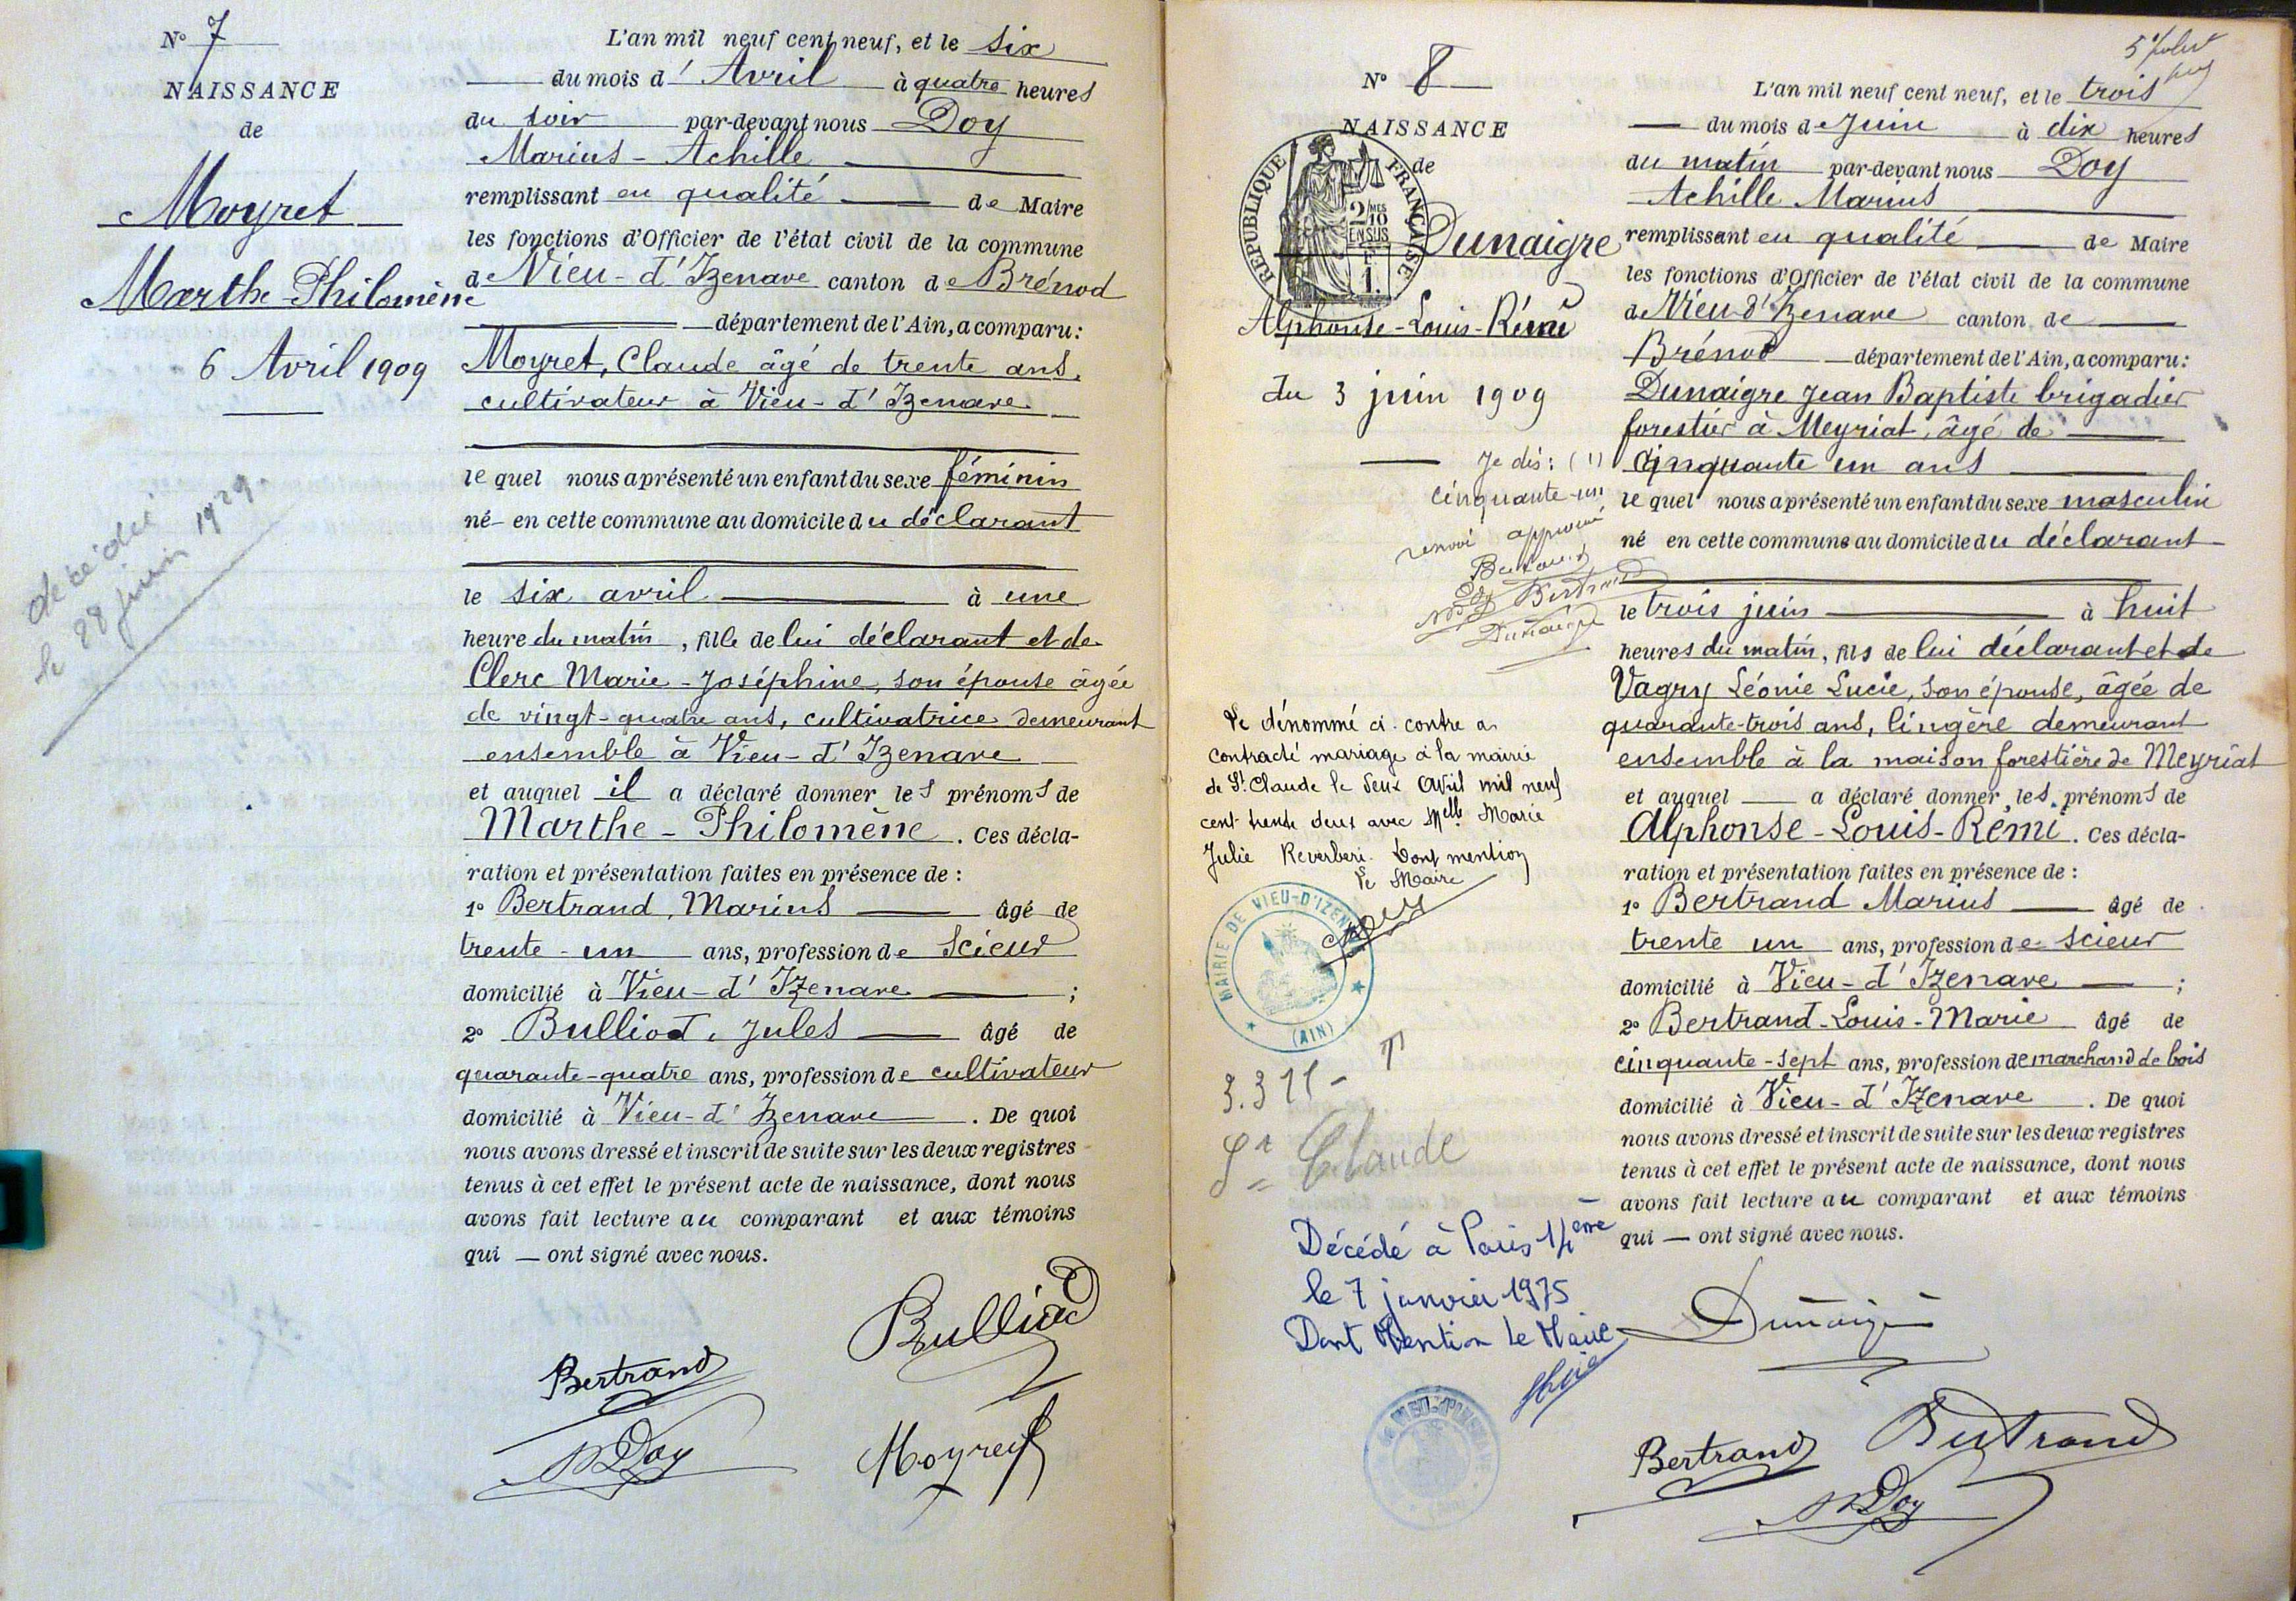 N° 7
NAISSANCE
de
Moyret
Marthe Philomène
6 Avril 1909
décédée
le 28 juin 1929
L'an mil neuf cent neuf, et le six
du mois d' Avril à quatre heures
du soir par-devant nous Doy
Marius - Achille
remplissant en qualité de Maire
les fonctions d'Officier de l'état civil de la commune
de Vieu - d'Izenave canton de Brénod
département de l'Ain, a comparu :
Moyret, Claude âgé de trente ans,
cultivateur à Vieu - d'Izenave
le quel nous a présenté un enfant du sexe féminin
né en cette commune au domicile du déclarant
le six avril à une
heure du matin, fille de lui déclarant et de
Clerc Marie - Joséphine, son épouse âgée
de vingt-quatre ans, cultivatrice demeurant
ensemble à Vieu - d'Izenave
et auquel il a déclaré donner les prénoms de
Marthe - Philomène. Ces décla-
ration et présentation faites en présence de :
1° Bertrand, Marius âgé de
trente - un ans, profession de Scieur
domicilié à Vieu - d'Izenave ;
2° Bulliod, Jules âgé de
quarante-quatre ans, profession de cultivateur
domicilié à Vieu - d'Izenave. De quoi
nous avons dressé et inscrit de suite sur les deux registres
tenus à cet effet le présent acte de naissance, dont nous
avons fait lecture au comparant et aux témoins
qui — ont signé avec nous.
Bulliod
Bertrand
Doy
Moyret
N° 8
NAISSANCE
de
RÉPUBLIQUE FRANÇAISE
2/10 MES EN SUS
1.
Dunaigre
Alphonse - Louis - Rémi
du 3 juin 1909
Je dis : (1)
cinquante-un
renvoi approuvé
Bertrand
Bertrand
Doy
Dunaigre
Le dénommé ci-contre a
contracté mariage à la mairie
de St Claude le deux Avril mil neuf
cent trente deux avec Melle Marie
Julie Reverberi. Dont mention
Le Maire
Doy
MAIRIE DE VIEU-D'IZENAVE
(AIN)
St Claude
Décédé à Paris 14ème
le 7 janvier 1975
Dont Mention Le Maire
L'an mil neuf cent neuf, et le trois
du mois de Juin à dix heures
du matin par-devant nous Doy
Achille Marius
remplissant en qualité de Maire
les fonctions d'Officier de l'état civil de la commune
de Vieu d'Izenave canton de
Brénod département de l'Ain, a comparu :
Dunaigre Jean Baptiste brigadier
forestier à Meyriat, âgé de
cinquante un ans
le quel nous a présenté un enfant du sexe masculin
né en cette commune au domicile du déclarant
le trois juin à huit
heures du matin, fils de lui déclarant et de
Vagry Léonie Lucie, son épouse, âgée de
quarante-trois ans, lingère demeurant
ensemble à la maison forestière de Meyriat
et auquel — a déclaré donner les prénoms de
Alphonse - Louis - Rémi. Ces décla-
ration et présentation faites en présence de :
1° Bertrand Marius âgé de
trente un ans, profession de scieur
domicilié à Vieu - d'Izenave ;
2° Bertrand - Louis - Marie âgé de
cinquante - sept ans, profession de marchand de bois
domicilié à Vieu - d'Izenave. De quoi
nous avons dressé et inscrit de suite sur les deux registres
tenus à cet effet le présent acte de naissance, dont nous
avons fait lecture au comparant et aux témoins
qui — ont signé avec nous.
Dunaigre
Bertrand Bertrand
Doy